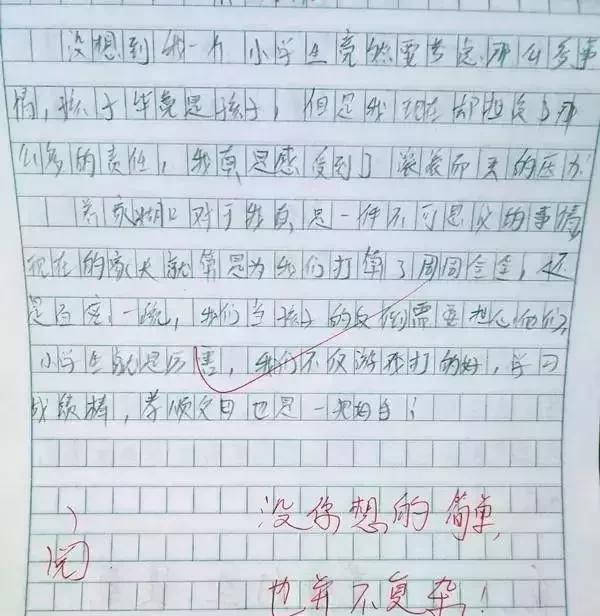 没想到我一个小学生竟然要考虑那么多事
情，孩子毕竟是孩子，但是我现在却担负了那
么多的责任，我真是感受到了滚滚而来的压力
养家糊口对于我真是一件不可思议的事情，
现在的家长就算是为我们打算了周周全全，还
是百密一疏，我们当孩子的反倒需要担心他们，
小学生就是厉害，我们不仅游戏打的好，学习
成绩棒，孝顺父母也是一把好手！
阅
没你想的简单，
也并不复杂！